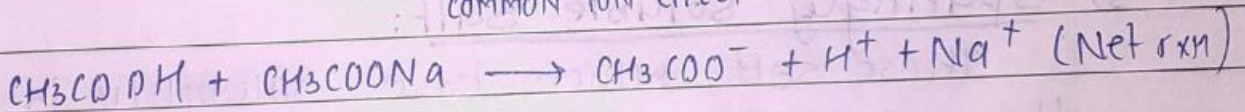 COMMON ION EFFECT
CH3COOH + CH3COONa ⟶ CH3COO⁻ + H⁺ + Na⁺ (Net rxn)